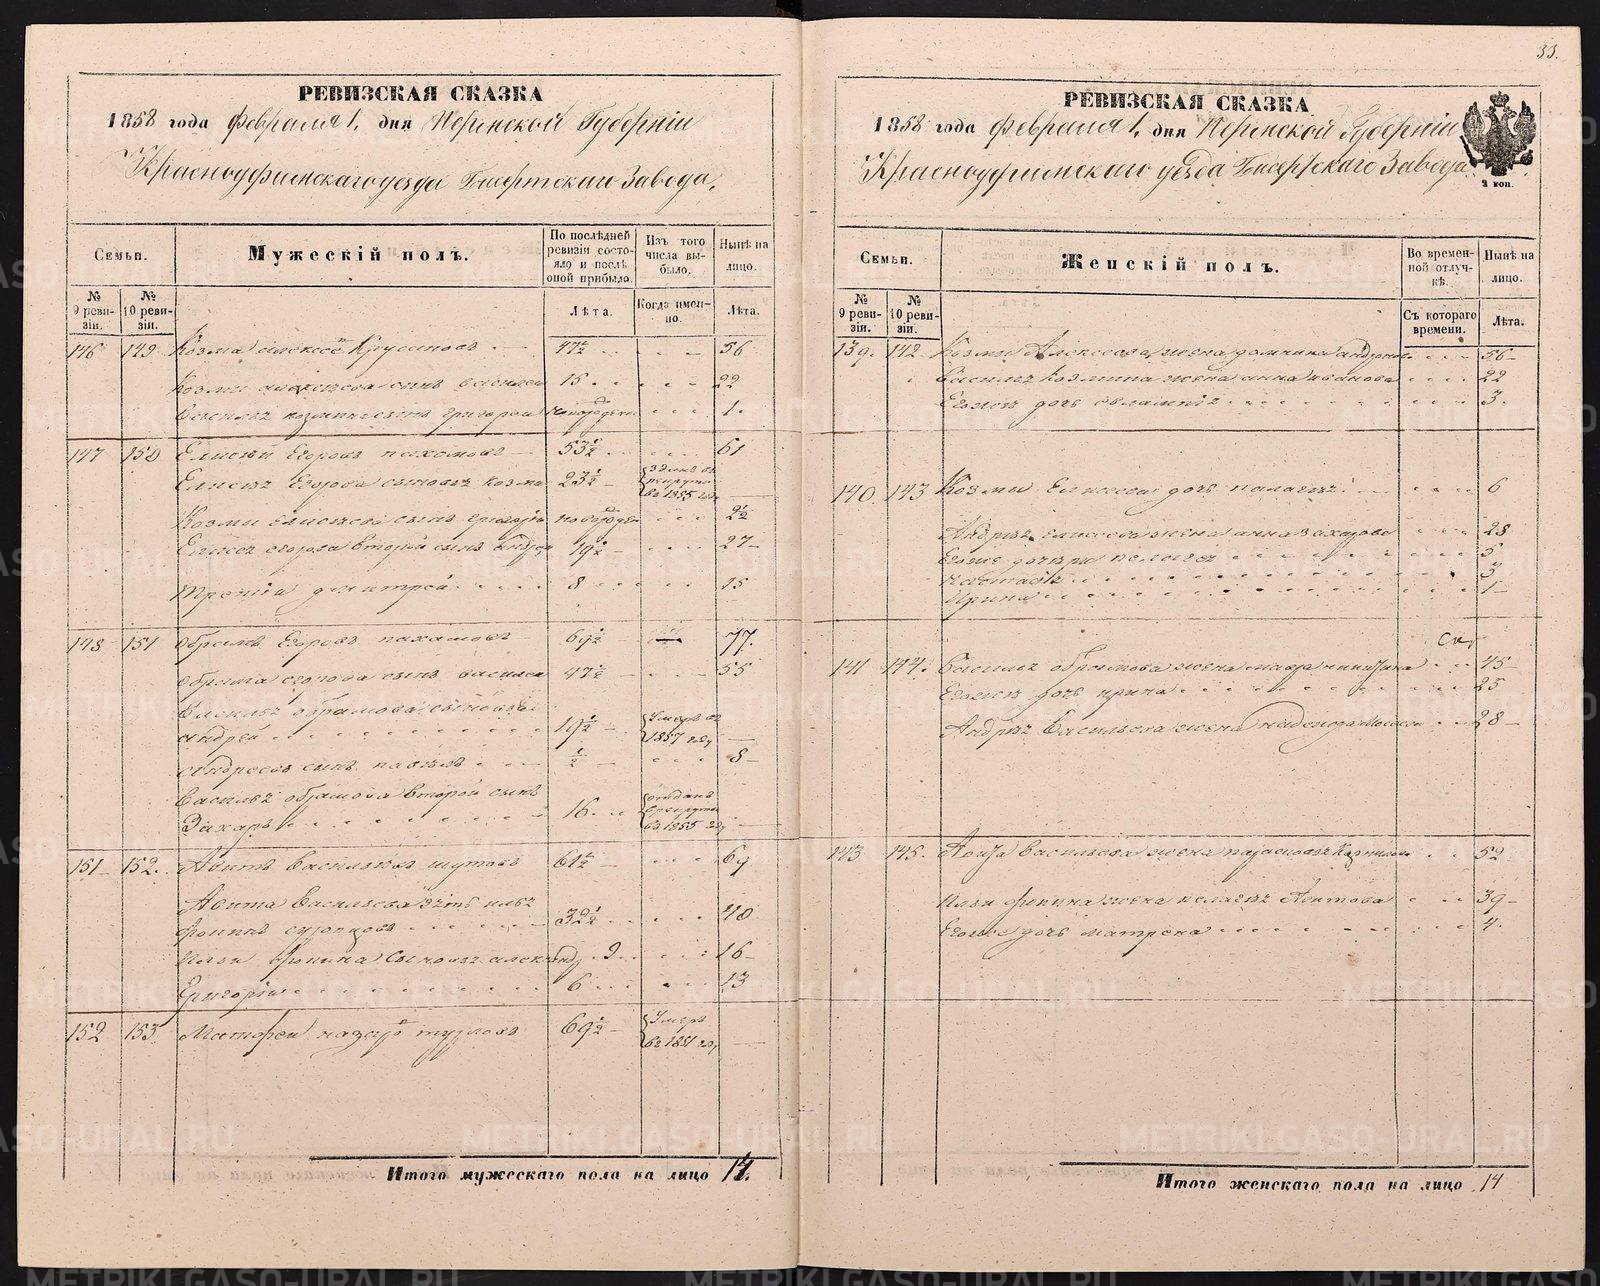 33.
РЕВИЗСКАЯ СКАЗКА
1858 года Февраля 1, дня Пермской Губерніи
Красноуфимскаго уезда Бисертскаго Завода,
Семьи.
Мужескій полъ.
По послѣдней ревизіи состояло и послѣ оной прибыло.
Изъ того числа выбыло.
Нынѣ на лицо.
№ 9 ревизіи.
№ 10 ревизіи.
Лѣта.
Когда именно.
Лѣта.
146 149 Козма Алексее 47½ 56
Козмы алексеева сынъ василеи 15 22
Василья козмина сынъ григореи новорожден 1
147 150 Елисей Егоровъ пахомовъ 53½ 61
Елисея Егорова сыновья козма 23½ зданъ въ рекруты въ 1855 году
Козмы елисеева сынъ григореи новорожден 2½
Елисея егорова второй сынъ андреи 19½ 27
третии дмитреи 8 15
148 151 Обрамъ Егоровъ пахамовъ 69½ 77.
Обрама егорова сынъ василеи 47½ 55
Василья обрамова сыновья
андреи 19½ Умеръ въ 1857 году
Андреевъ сынъ павелъ ½ 8
Василья обрамова второй сынъ
Захаръ 16 отданъ в рекруты въ 1855 году
151 152. Авитъ Васильевъ шутовъ 61½ 69
Авита Васильева зять илья
фоминъ 32½ 40
Ильи фомина Сыновья александр 9 16
Григореи 6 13
152 153 Матфеи 69½ Умеръ въ 1851 году
Итого мужескаго пола на лицо 14.
РЕВИЗСКАЯ СКАЗКА
1858 года Февраля 1, дня Пермской Губерніи
Красноуфимскаго уезда Бисертскаго Завода
2 коп.
Семьи.
Женскій полъ.
Во временной отлучкѣ.
Нынѣ на лицо.
№ 9 ревизіи.
№ 10 ревизіи.
Съ котораго времени.
Лѣта.
139. 142. Козмы Алексеева жена домнина 56
Василья Козмина жена анна иванова 22
Егоже дочь 3
140 143 Козмы Елисеева дочь палагея 6
Андрея елисеева жена анна захарова 28
Егоже дочери пелагея 5
Настасия 3
Ирина 1
141 144. Василья обрамова жена никитина 45
Егоже дочь ирина 25
Андрея Васильева жена надежда 28
143 145. Авита Васильева жена 52
Ильи фомина жена пелагея Авитова 39
Егоже дочь матрена 4.
Итого женскаго пола на лицо 14
METRIKI.GASO-URAL.RU